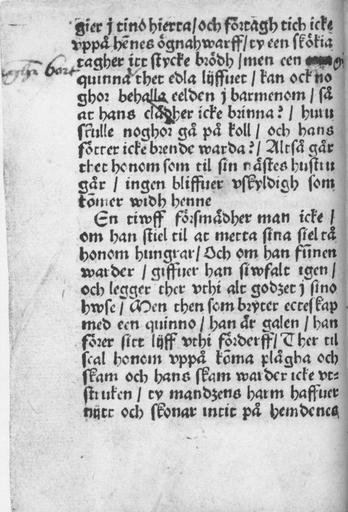 gier j tino hierta/och förtagh tich icke
vppå hēnes ögnahwarff/ty een skökia
tagher itt stycke brödh/men een
bort
quinna thet edla lijffuet/kan ock no
ghor behalla eelden j barmenom/så
at hans clädher icke brinna?/huru
skulle noghor gå på koll/och hans
fötter icke brende warda?/Altså går
thet honom som til sin nästes hustru
går/ingen bliffuer vskyldigh som
kōmer widh henne
En tiwff försmädher man icke/
om han stiel til at metta sina siel tå
honom hungrar/Och om han fūnen
warder/giffuer han siwfalt igen/
och legger ther vthi alt godzet j sino
hwse/Men then som bryter ecteskap
med een quinno/han är galen/han
förer sitt lijff vthi förderff/Ther til
scal honom vppå kōma plågha och
skam och hans skam warder icke vt=
struken/ty mandzens harm haffuer
nijtt och skonar intit på hemdenes